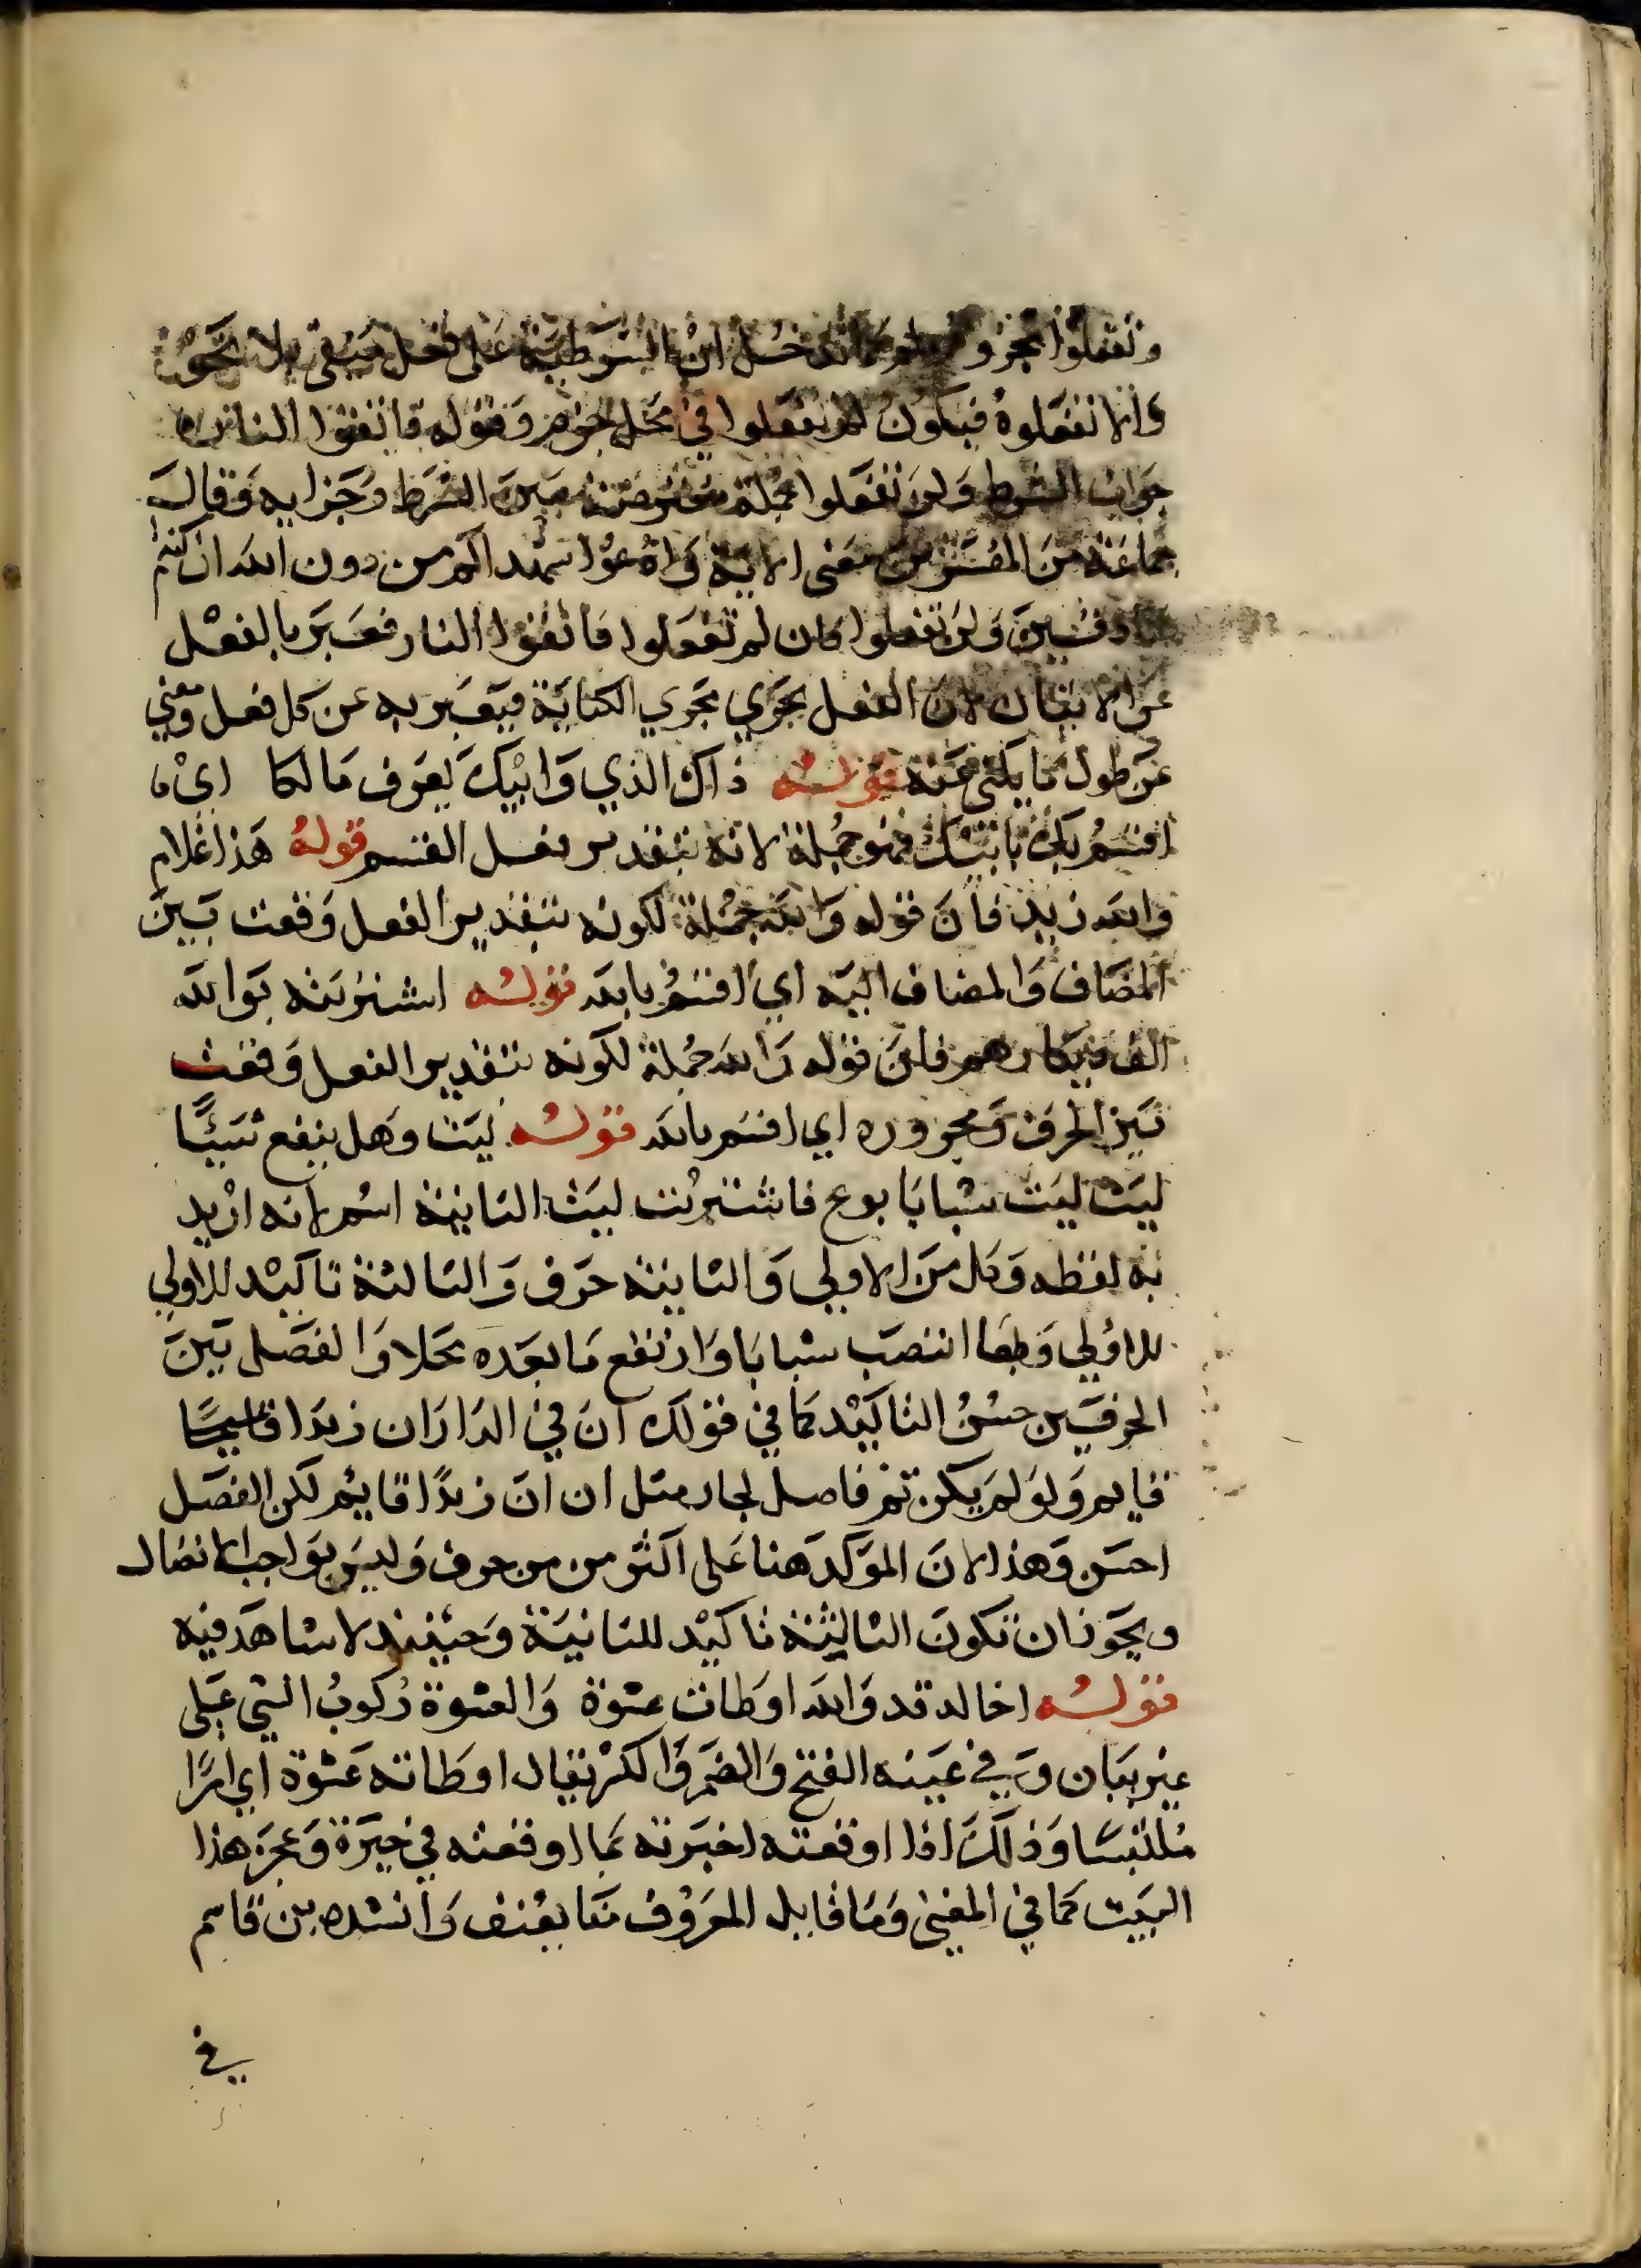 وتفعلوا مجزوم تدخل ان الشرطية على فعل منفى بلا نحو
والا تفعلوه فيكون لم تفعلوا في محل جزم وقوله فاتقوا النار
جواب الشرط ولن تفعلوا جملة معترضة بين الشرط وجزايه وقال
جماعة من المفسرين معنى الاية وادعوا شهداكم من دون الله ان كنتم
صادقين ولن تفعلوا فان لم تفعلوا فاتقوا النار فعبر بالفعل
عن الاتيان لان الفعل يجري مجري الكناية فيعبر به عن كل فعل ومعني
عن طول ما يكنى عنه قوله ذاك الذي وابيك يعرف مالكا اي
اقسم بابيك فهو جملة لانه بتقدير فعل القسم قوله هذا غلام
والله زيد فان قوله والله جملة لكونه بتقدير الفعل وقعت بين
المضاف والمضاف اليه اي اقسم بالله قوله اشتريته بوالله
الف درهم فان قوله والله جملة لكونه بتقدير الفعل وقعت
بين الحرف ومجروره اي اقسم بالله قوله ليت وهل ينفع شيئًا
ليت ليت شبابا بوع فاشتريت ليت الثانية اسم لانه اريد
به لفظه وكل من الاولي والثانية حرف والثالثة تاكيد للاولي
للاولي وطهاا انتصب شبابا وارتفع ما بعده محلا والفصل بين
الحرفين حسن التاكيد كما في قولك ان في الدار ان زيدا قايمًا
قايم ولو لم يكن ثم فاصل لجاز مثل ان ان زيدًا قايم لكن الفصل
احسن وهذا لان الموكد هنا على اكثر من من حرف وليس بواجب الاتصال
ويجوز ان تكون الثالثة تاكيد للثانية وحينئذ لا شاهد فيه
قوله اخالد قد والله اوطات عشوة والعشوة ركوب الشي على
غير بيان وفي عينه الفتح والضم والكسر يقال اوطاته عشوة اي امرًا
ملتبسا وذلك اذا اوقعته اخبرته بما اوقعته في حيرة وعجز هذا
البيت كما في المغني وما قايل المعروف فينا يعنف وانشده بن قاسم
في